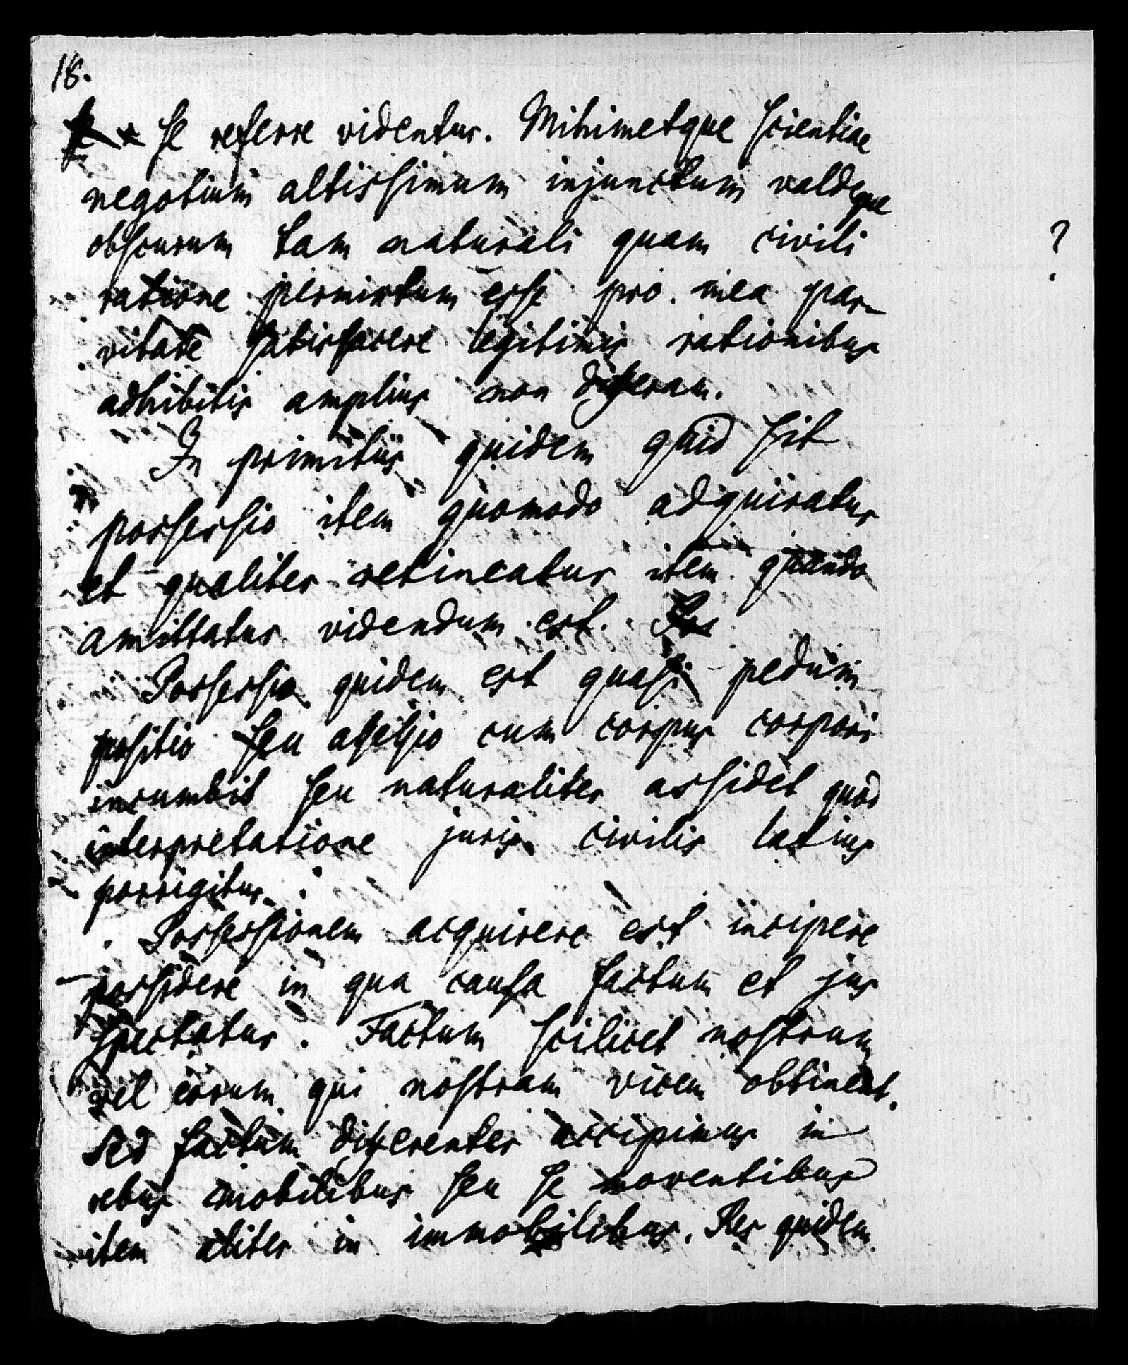 18.
se referre videntur. Mihimetque scientiae
negotium altissimum injunctum valdeque
obscurum tam naturali quam civili
?
ratione permixtum esse pro mea par-
vitate satisfacere legitimis rationibus
adhibitis amplius non differam.
In primitiis quidem quid sit
possessio item quomodo adquiratur
et qualiter retineatur item quando
amittatur videndum est.
Possessio quidem est quasi pedum
positio seu
cum corpus corpori
incumbit seu naturaliter assidet quod
interpretatione juris civilis latius
porrigitur.
Possessionem acquirere est incipere
possidere in qua causa factum et jus
spectatur. Factum scilicet nostrum
vel eorum qui nostram vicem obtinent.
Sed factum differenter accipimus in
rebus mobilibus seu se moventibus
item aliter in immobilibus. Res quidem